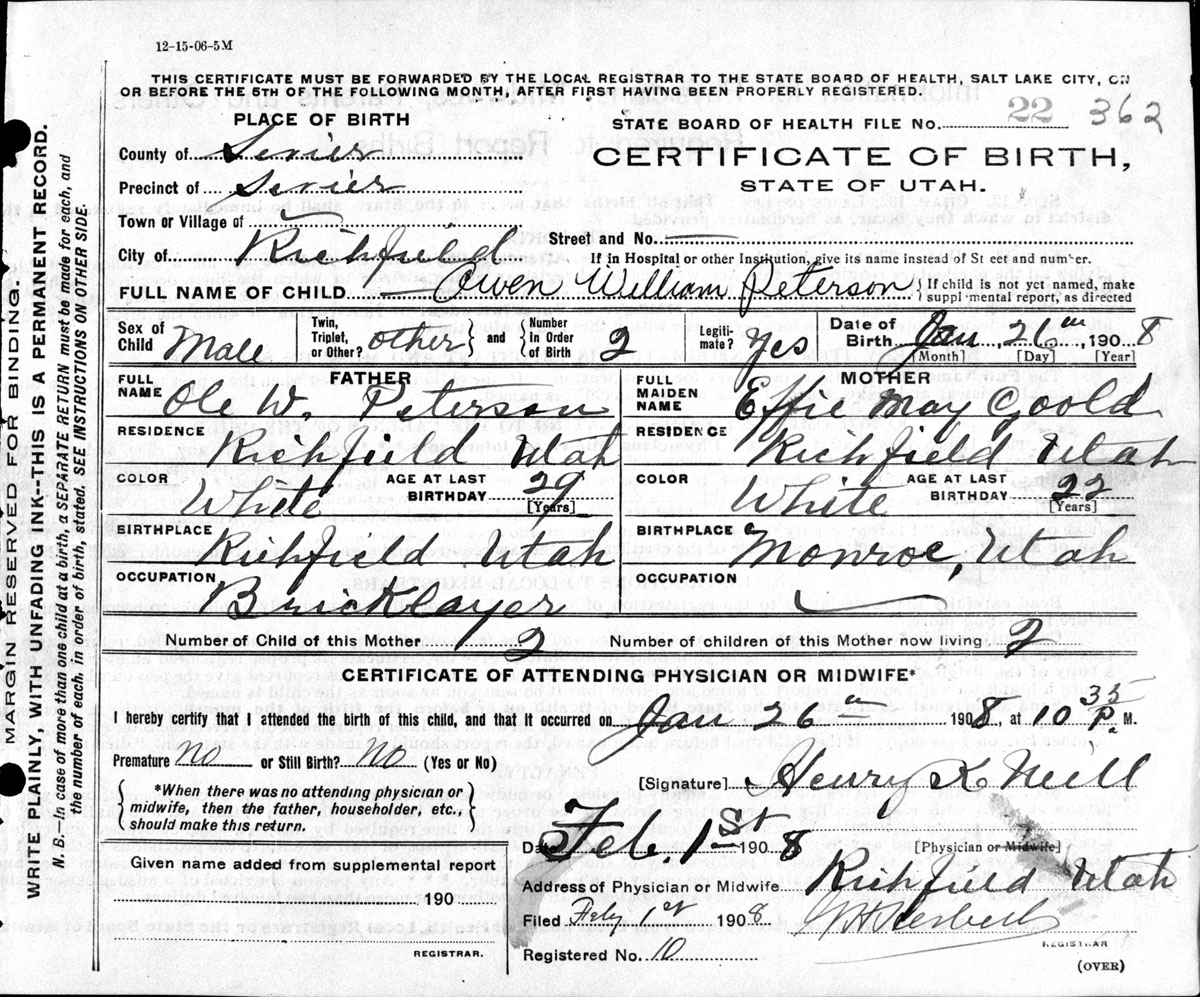 12-15-06-5M
THIS CERTIFICATE MUST BE FORWARDED BY THE LOCAL REGISTRAR TO THE STATE BOARD OF HEALTH, SALT LAKE CITY, ON
OR BEFORE THE 5TH OF THE FOLLOWING MONTH, AFTER FIRST HAVING BEEN PROPERLY REGISTERED.
PLACE OF BIRTH
STATE BOARD OF HEALTH FILE No. 22 362
County of Sevier
CERTIFICATE OF BIRTH,
Precinct of Sevier
STATE OF UTAH.
Town or Village of
Street and No.
City of Richfield
If in Hospital or other Institution, give its name instead of St eet and num er.
FULL NAME OF CHILD Owen William Peterson { If child is not yet named, make
suppl mental report, as directed
Sex of Child Male
Twin, Triplet, or Other? other } and { Number in Order of Birth 2
Legiti-mate? Yes
Date of Birth Jan 26th, 1908
[Month] [Day] [Year]
FATHER
FULL NAME Ole W. Peterson
RESIDENCE Richfield Utah
COLOR White AGE AT LAST BIRTHDAY 29 [Years]
BIRTHPLACE Richfield Utah
OCCUPATION Bricklayer
MOTHER
FULL MAIDEN NAME Effie May Goold
RESIDENCE Richfield Utah
COLOR White AGE AT LAST BIRTHDAY 22 [Years]
BIRTHPLACE Monroe, Utah
OCCUPATION
Number of Child of this Mother 2 Number of children of this Mother now living 2
CERTIFICATE OF ATTENDING PHYSICIAN OR MIDWIFE*
I hereby certify that I attended the birth of this child, and that it occurred on Jan 26 1908, at 10 35 P. M.
Premature no or Still Birth? No (Yes or No)
*When there was no attending physician or
midwife, then the father, householder, etc.,
should make this return.
[Signature] Henry K Neill
Date Feb. 1st 1908 [Physician or Midwife]
Given name added from supplemental report
190
REGISTRAR.
Address of Physician or Midwife Richfield Utah
Filed 1st 1908
REGISTRAR
Registered No. 10
(OVER)
MARGIN RESERVED FOR BINDING.
WRITE PLAINLY, WITH UNFADING INK--THIS IS A PERMANENT RECORD.
N. B.—In case of more than one child at a birth, a SEPARATE RETURN must be made for each, and
the number of each, in order of birth, stated. SEE INSTRUCTIONS ON OTHER SIDE.